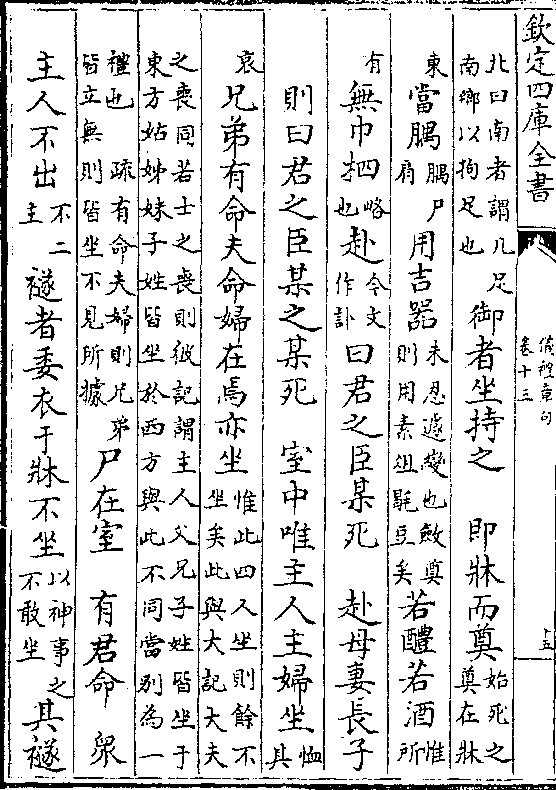 欽定四庫全書
儀禮章句
卷十三
北曰南者謂几足南鄉以拘足也御者坐持之 即牀而奠始死之奠在牀
東當腢腢尸肩用吉器未忍遽變也斂奠則用素俎毼豆矣若醴若酒惟所
有無巾柶略也赴今文作訃曰君之臣某死 赴母妻長子
則曰君之臣某之某死 室中唯主人主婦坐恤其
哀兄弟有命夫命婦在焉亦坐惟此四人坐則餘不坐矣此與大記大夫
之喪同若士之喪則彼記謂主人父兄子姓皆坐于東方姑姊妹子姓皆坐於西方與此不同當別為一
禮也 疏有命夫婦則兄弟皆立無則皆坐不見所據尸在室 有君命 衆
主人不出不二主襚者委衣于牀不坐以神事之不敢坐其襚